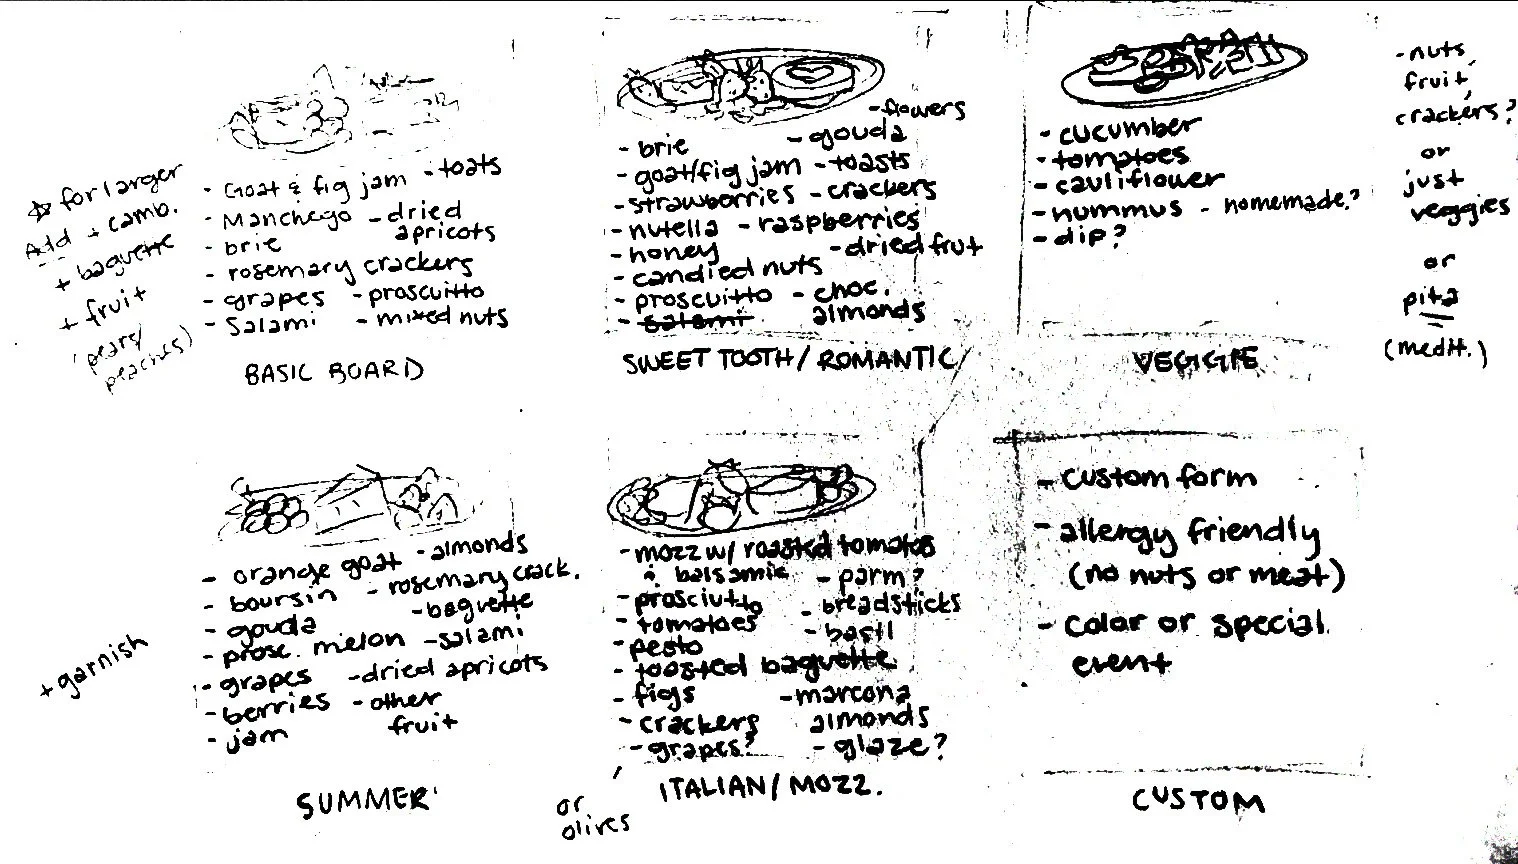 - Goat & fig jam
- toats
- Manchego
- dried apricots
- brie
- rosemary crackers
- grapes
- proscuitto
- Salami
- mixed nuts
BASIC BOARD
☆ for larger
Add + camb.
+ baguette
+ fruit
(pears/
peaches)
- flowers
- brie
- gouda
- goat/fig jam
- toasts
- strawborries
- crackers
- nutella
- raspberries
- honey
- dried frut
- candied nuts
- proscuitto
- choc.
almonds
- salami
SWEET TOOTH / ROMANTIC
- cucumber
- tomatoes
- cauliflower
- hummus - homemade?
- dip?
VEGGIE
- nuts,
fruit,
crackers?
or
just
veggies
or
pita
(medit.)
- orange goat
- almonds
- boursin
- rosemary crack.
- gouda
- baguette
- prosc. melon
- salami
- grapes
- dried apricots
- berries
- other
fruit
- jam
SUMMER
+ garnish
- mozz w/ roasted tomatos
& balsamic
- parm?
- prosciutto
- breadsticks
- tomatoes
- basil
- pesto
- toasted baguette
- figs
- marcona
almonds
- crackers
- grapes?
- glaze?
ITALIAN / MOZZ.
or
olives
- custom form
- allergy friendly
(no nuts or meat)
- color or special
event
CUSTOM